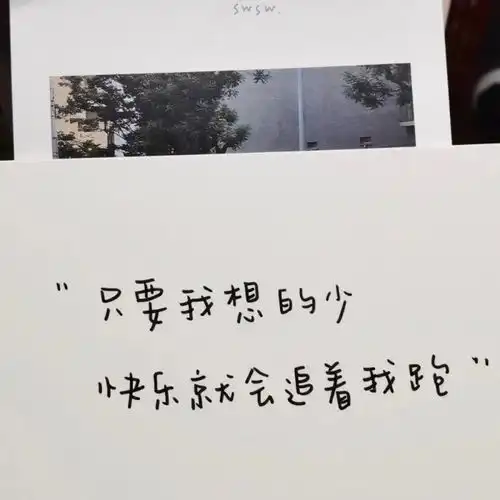 swsw.
"只要我想的少
快乐就会追着我跑"